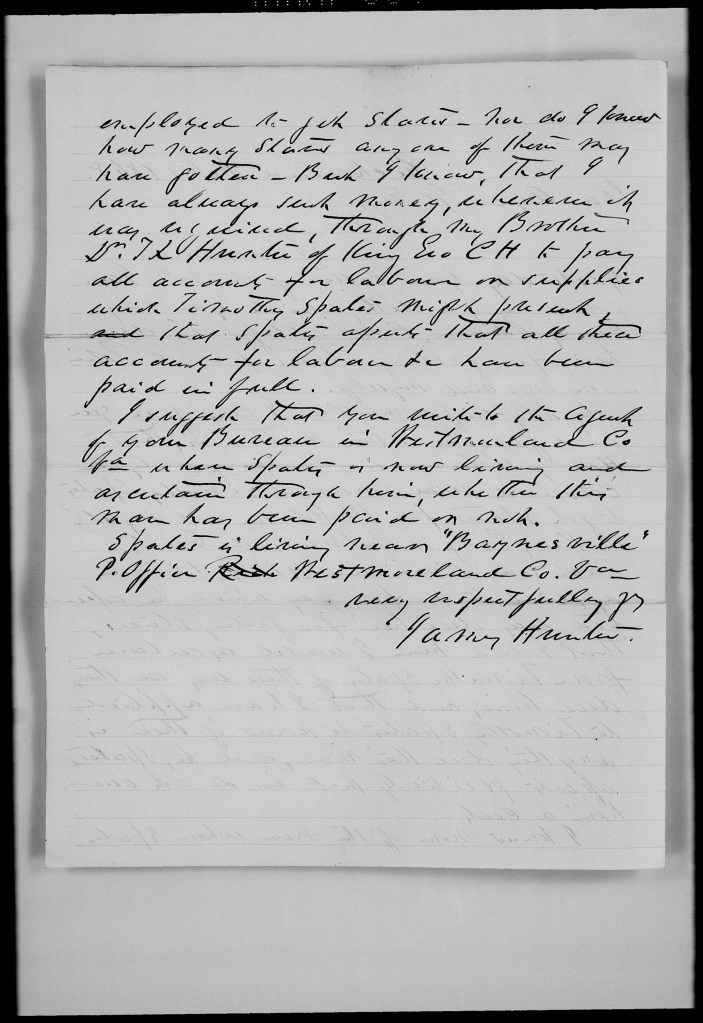 employed to get staves – nor do I know
how many staves any one of them may
have gotten – But I know, that I
have always sent money, whenever it
was required, through my Brother
Dr. T L Hunter of King Geo C H to pay
all accounts for labour or supplies
which Timothy Spates might present,
and that Spates asserts that all these
accounts for labour &c have been
paid in full.
I suggest that you write to the Agent
of your Bureau in Westmoreland Co
Va where Spates is now living and
ascertain through him, whether this
man has been paid or not.
Spates is living near "Baynesville"
P. Office Westmoreland Co. Va
very respectfully yr
James Hunter.